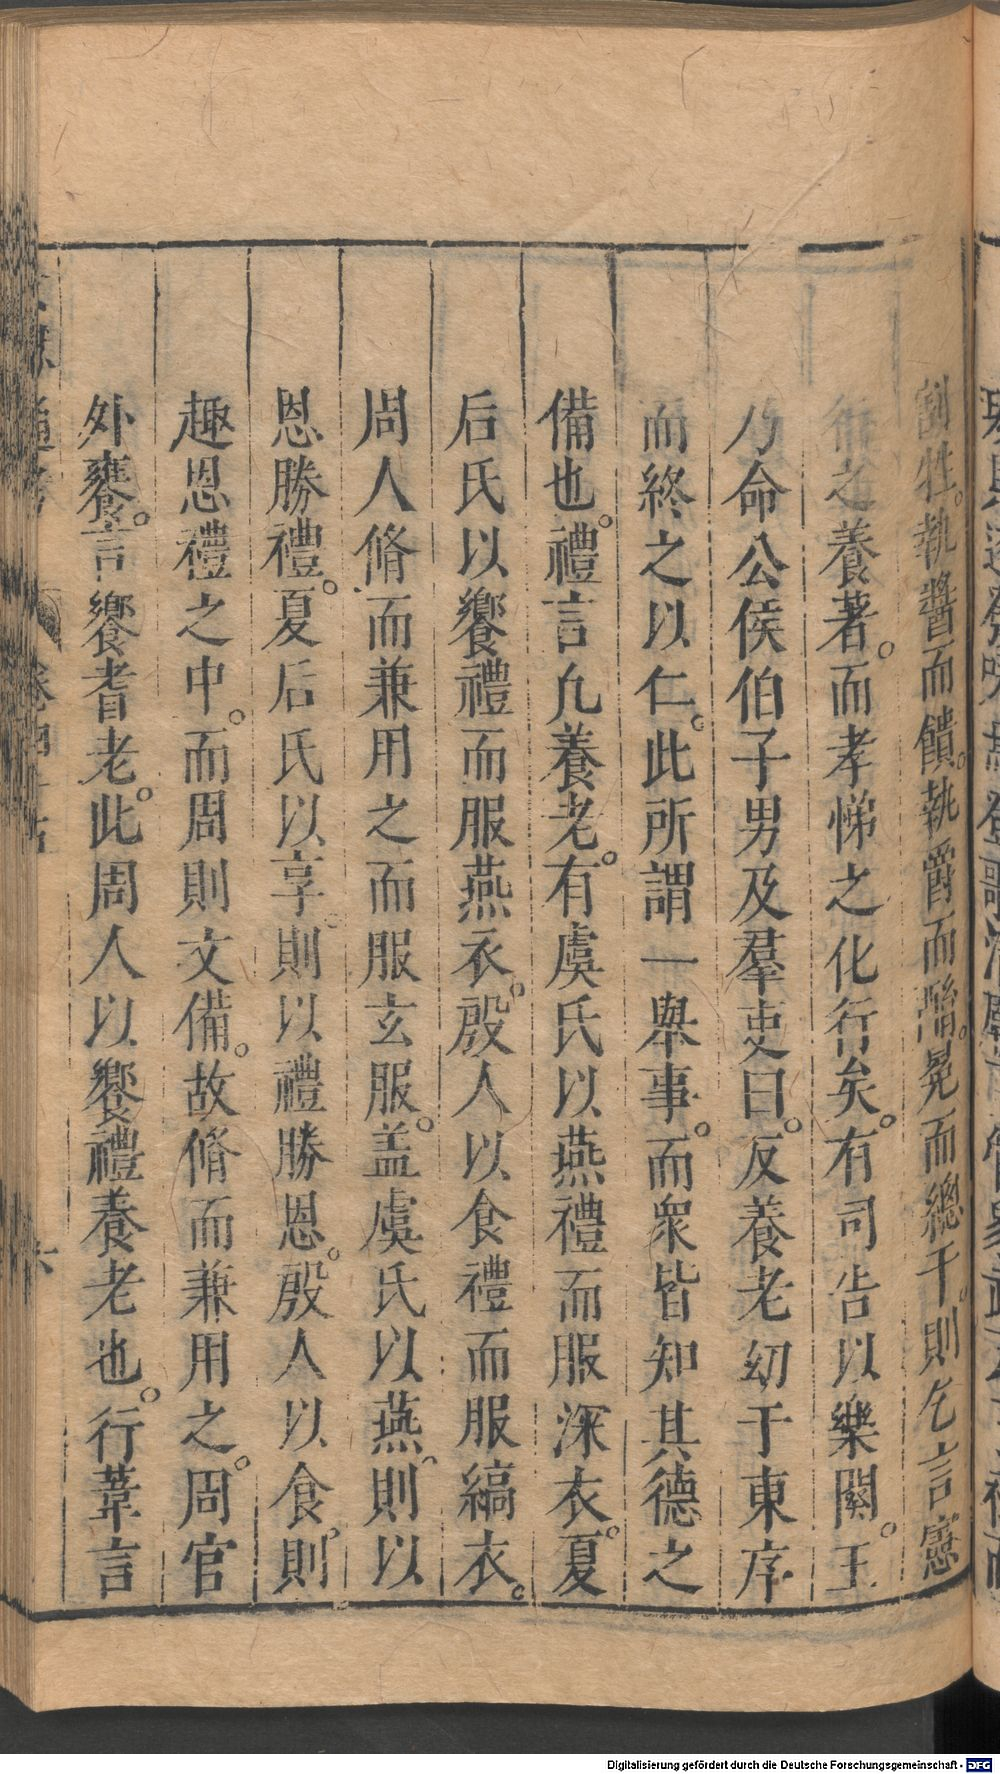 割牲。執醬而饋。執爵而酳。冕而總干。則乞言憲
之養著。而孝悌之化行矣。有司告以樂闋。王
乃命公侯伯子男及羣吏曰。反養老幼于東序
而終之以仁。此所謂一舉事。而衆皆知其德之
備也。禮言凢養老。有虞氏以燕禮而服深衣。夏
后氏以饗禮而服燕衣。殷人以食禮而服縞衣。
周人脩而兼用之而服玄服。盖虞氏以燕。則以
恩勝禮。夏后氏以享。則以禮勝恩。殷人以食。則
趣恩禮之中。而周則文備。故脩而兼用之。周官
外饔。言饗耆老。此周人以饗禮養老也。行葦言
Digitalisierung gefördert durch die Deutsche Forschungsgemeinschaft - DFG